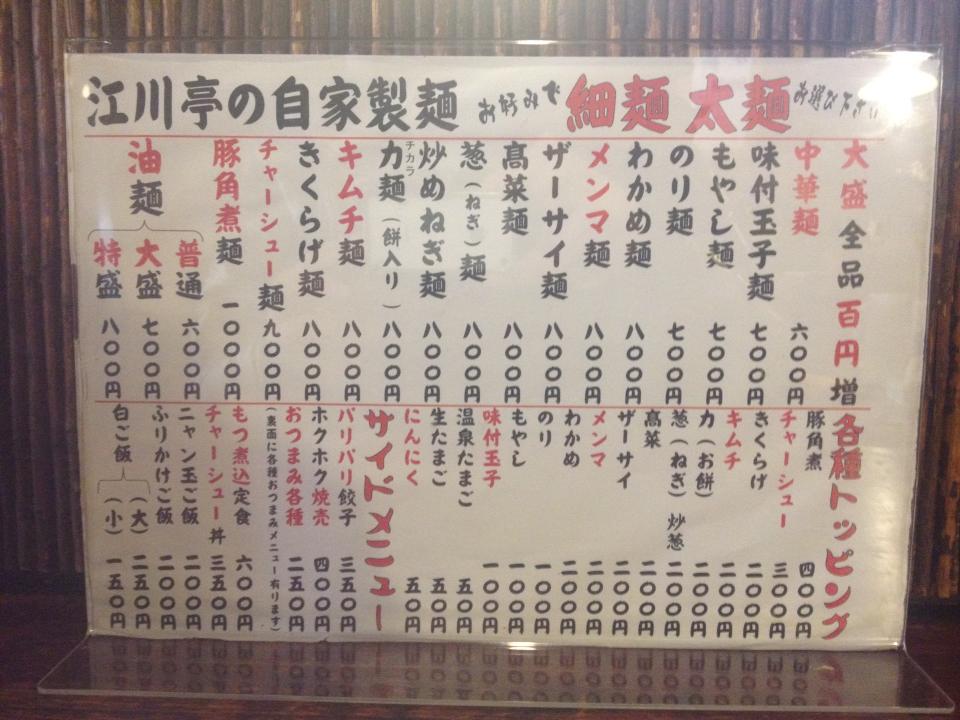 江川亭の自家製麺 お好みで 細麺 太麺 お選び下さい
大盛全品百円増
中華麺 六〇〇円
味付玉子麺 七〇〇円
もやし麺 七〇〇円
のり麺 七〇〇円
わかめ麺 八〇〇円
メンマ麺 八〇〇円
ザーサイ麺 八〇〇円
高菜麺 八〇〇円
葱(ねぎ)麺 八〇〇円
炒めねぎ麺 八〇〇円
チカラ
力麺(餅入り) 八〇〇円
キムチ麺 八〇〇円
きくらげ麺 八〇〇円
チャーシュー麺 九〇〇円
豚角煮麺 一〇〇〇円
油麺
普通 六〇〇円
大盛 七〇〇円
特盛 八〇〇円
各種トッピング
豚角煮 四〇〇円
チャーシュー 三〇〇円
きくらげ 二〇〇円
キムチ 二〇〇円
力(お餅) 二〇〇円
葱(ねぎ) 炒葱 二〇〇円
高菜 二〇〇円
ザーサイ 二〇〇円
メンマ 二〇〇円
わかめ 二〇〇円
のり 一〇〇円
もやし 一〇〇円
味付玉子 一〇〇円
温泉たまご 五〇円
生たまご 五〇円
にんにく 五〇円
サイドメニュー
パリパリ餃子 三五〇円
ホクホク焼売 四〇〇円
おつまみ各種 二五〇円
(裏面に各種おつまみメニュー有ります)
もつ煮込定食 六〇〇円
チャーシュー丼 三五〇円
ニャン玉ご飯 二〇〇円
ふりかけご飯 二〇〇円
白ご飯
(大) 二五〇円
(小) 一五〇円